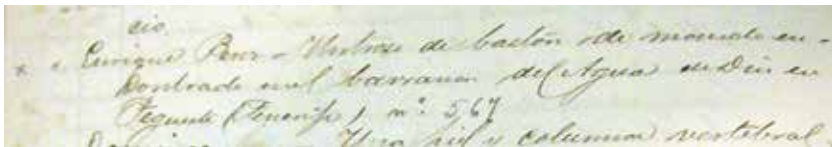 cio.
" Enrique Perez - Un trozo de bastón de mando en-
contrado en el barranco del Agua en
Tegueste (Tenerife) nº. 567
Una piel y columna vertebral